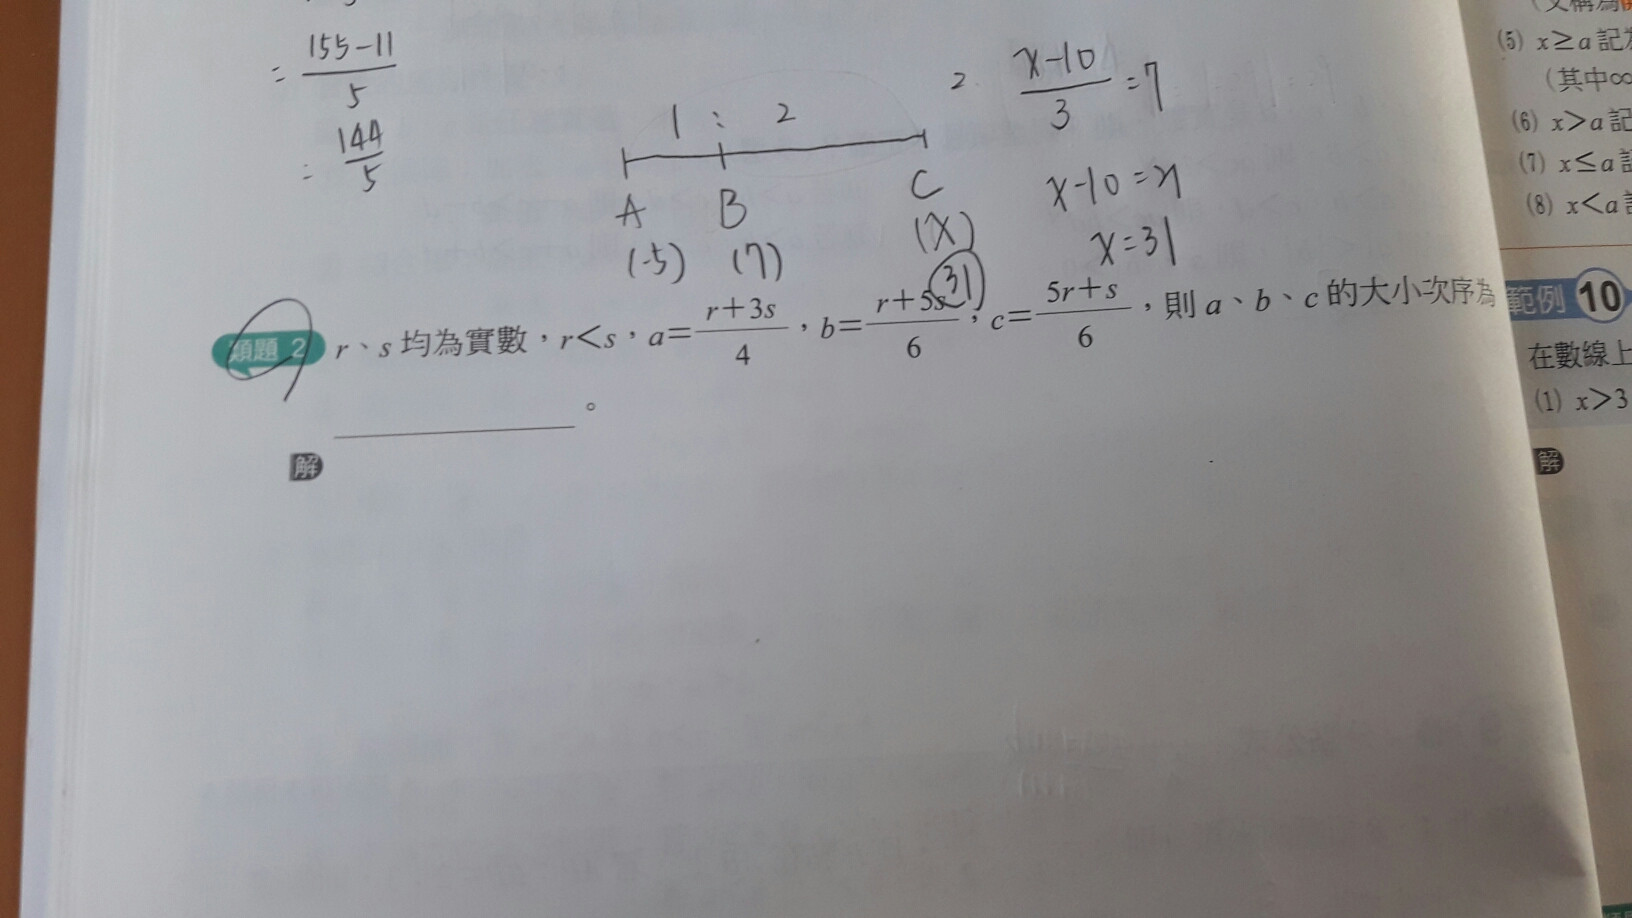 = 155-11 / 5
= 144 / 5
1 : 2
A B C
(-5) (7) (x)
31
2. x-10 / 3 = 7
x-10=21
x=31
類題 2 r、s 均為實數,r<s,a= r+3s / 4 ,b= r+5s / 6 ,c= 5r+s / 6 ,則 a、b、c 的大小次序為
。
解
(5) x≥a 記
(其中∞
(6) x>a 記
(7) x≤a
(8) x<a
範例 10
在數線上
(1) x>3
解